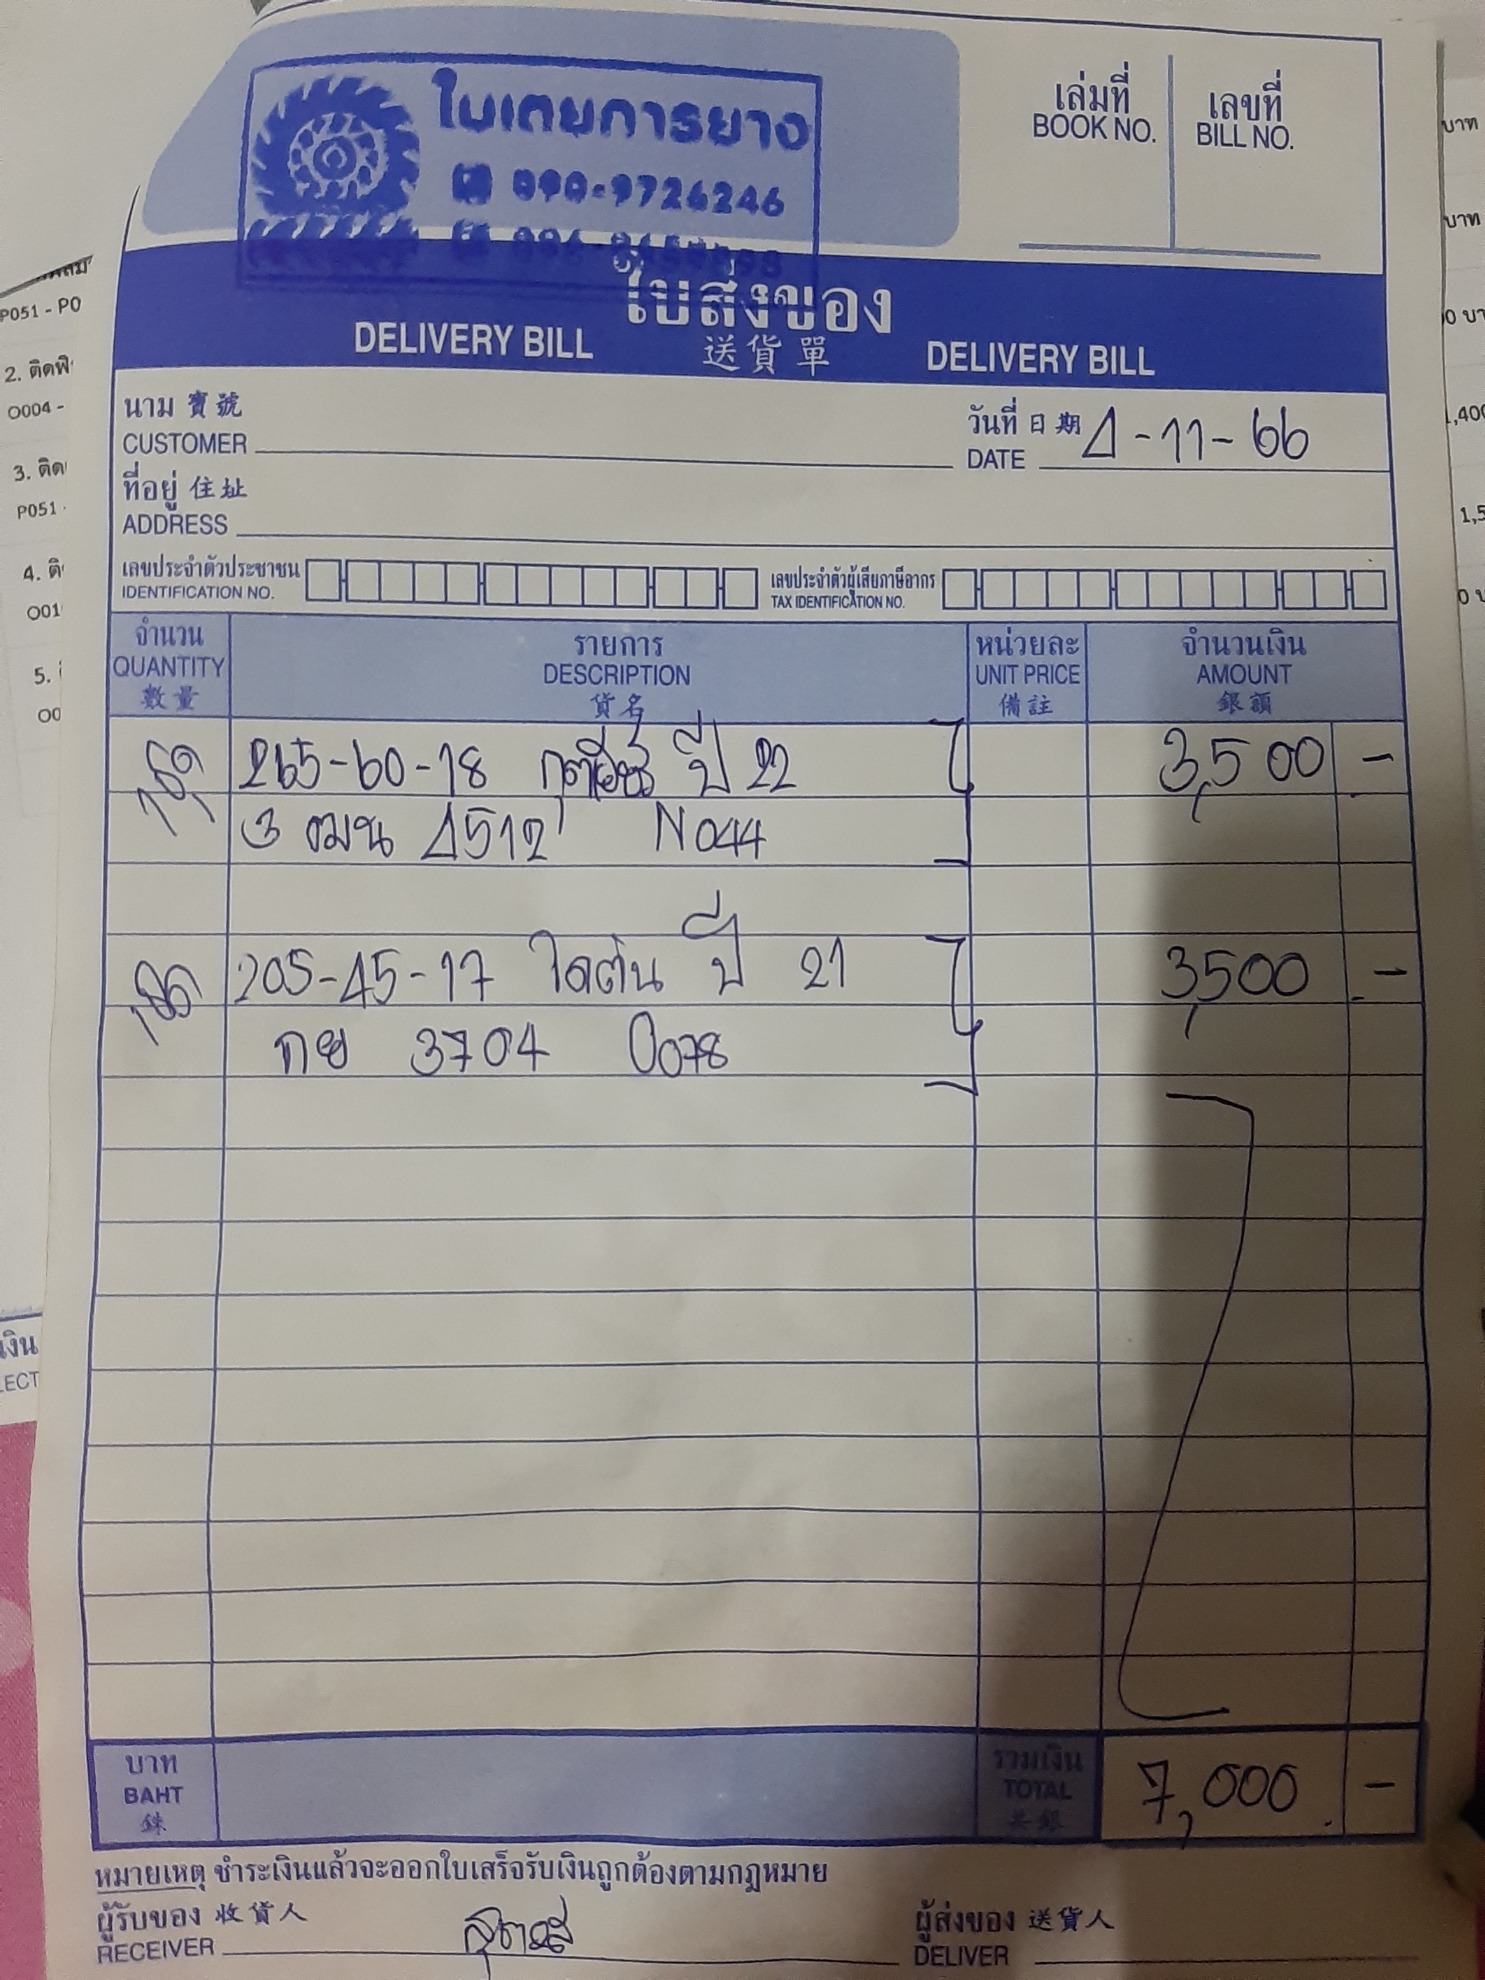 ใบเตยการยาง
090-9726246
เล่มที่
BOOK NO.
เลขที่
BILL NO.
ใบส่งของ
DELIVERY BILL 送貨單 DELIVERY BILL
นาม 寶號
CUSTOMER
วันที่ 日期 4-11-66
DATE
ที่อยู่ 住址
ADDRESS
เลขประจำตัวประชาชน
IDENTIFICATION NO.
เลขประจำตัวผู้เสียภาษีอากร
TAX IDENTIFICATION NO.
จำนวน รายการ หน่วยละ จำนวนเงิน
QUANTITY DESCRIPTION UNIT PRICE AMOUNT
數量 貨名 備註 銀額
265-60-18 ปี 22 3,500 -
3 ฒฆ 4512 N044
205-45-17 ปี 21 3,500 -
กย 3704 0078
บาท รวมเงิน
BAHT TOTAL 7,000 -
銖 共銀
หมายเหตุ ชำระเงินแล้วจะออกใบเสร็จรับเงินถูกต้องตามกฎหมาย
ผู้รับของ 收貨人
RECEIVER
ผู้ส่งของ 送貨人
DELIVER
P051 - P0
2. ติดฟิ
O004 -
3. ติด
P051
4. ติ
O01
5.
บาท
บาท
1,5
เงิน
LECT